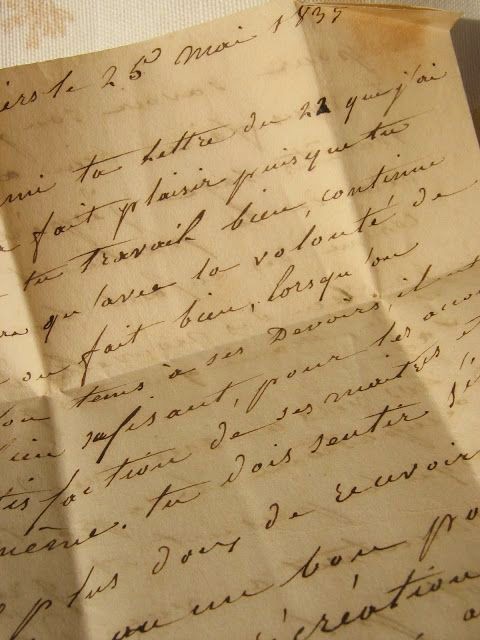 iers le 25 mai 1837
mi ta lettre du 22 que j'ai
fait plaisir puisque tu
tu travail bien, continue
qu'avec la volonté de
on fait bien, lorsqu'on
bon tems à ses Devoirs, il
bien sufisant, pour les
tisfaction de ses maitres et
même. tu dois sentir
plus doux de recevoir
ou un bon
récréation